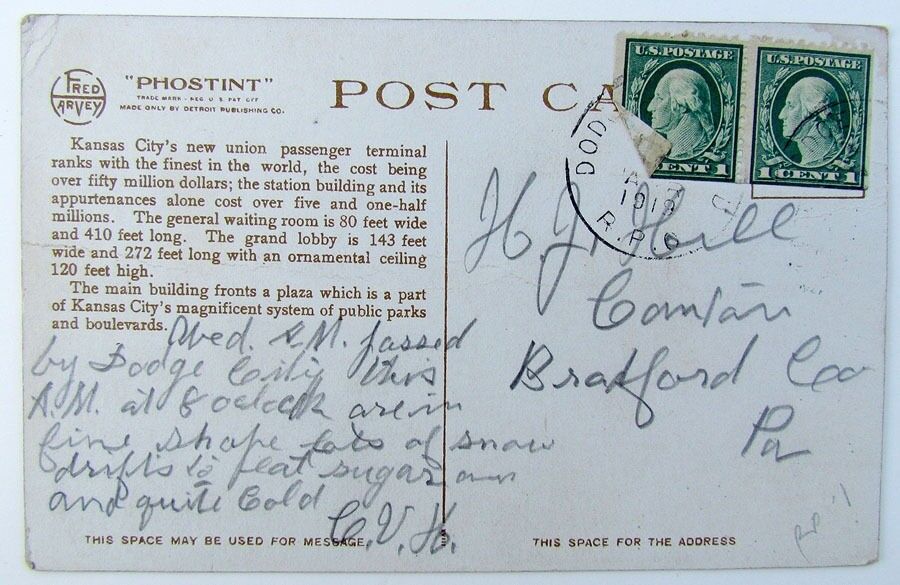 FRED HARVEY
"PHOSTINT"
TRADE MARK - REG U S PAT OFF
MADE ONLY BY DETROIT PUBLISHING CO.
POST CA
U.S. POSTAGE
U.S. POSTAGE
CENT 1
1 CENT 1
DOD
1918
R.P.O
Kansas City's new union passenger terminal
ranks with the finest in the world, the cost being
over fifty million dollars; the station building and its
appurtenances alone cost over five and one-half
millions. The general waiting room is 80 feet wide
and 410 feet long. The grand lobby is 143 feet
wide and 272 feet long with an ornamental ceiling
120 feet high.
The main building fronts a plaza which is a part
of Kansas City's magnificent system of public parks
and boulevards.
Wed. A.M. passed
by Dodge City this
A.M. at 8 oclock are in
fine shape lots of snow
drifts to peat sugar
and quite Cold
C.V.H.
H. J. Hill
Canton
Bradford Co
Pa
THIS SPACE MAY BE USED FOR MESSAGE
THIS SPACE FOR THE ADDRESS